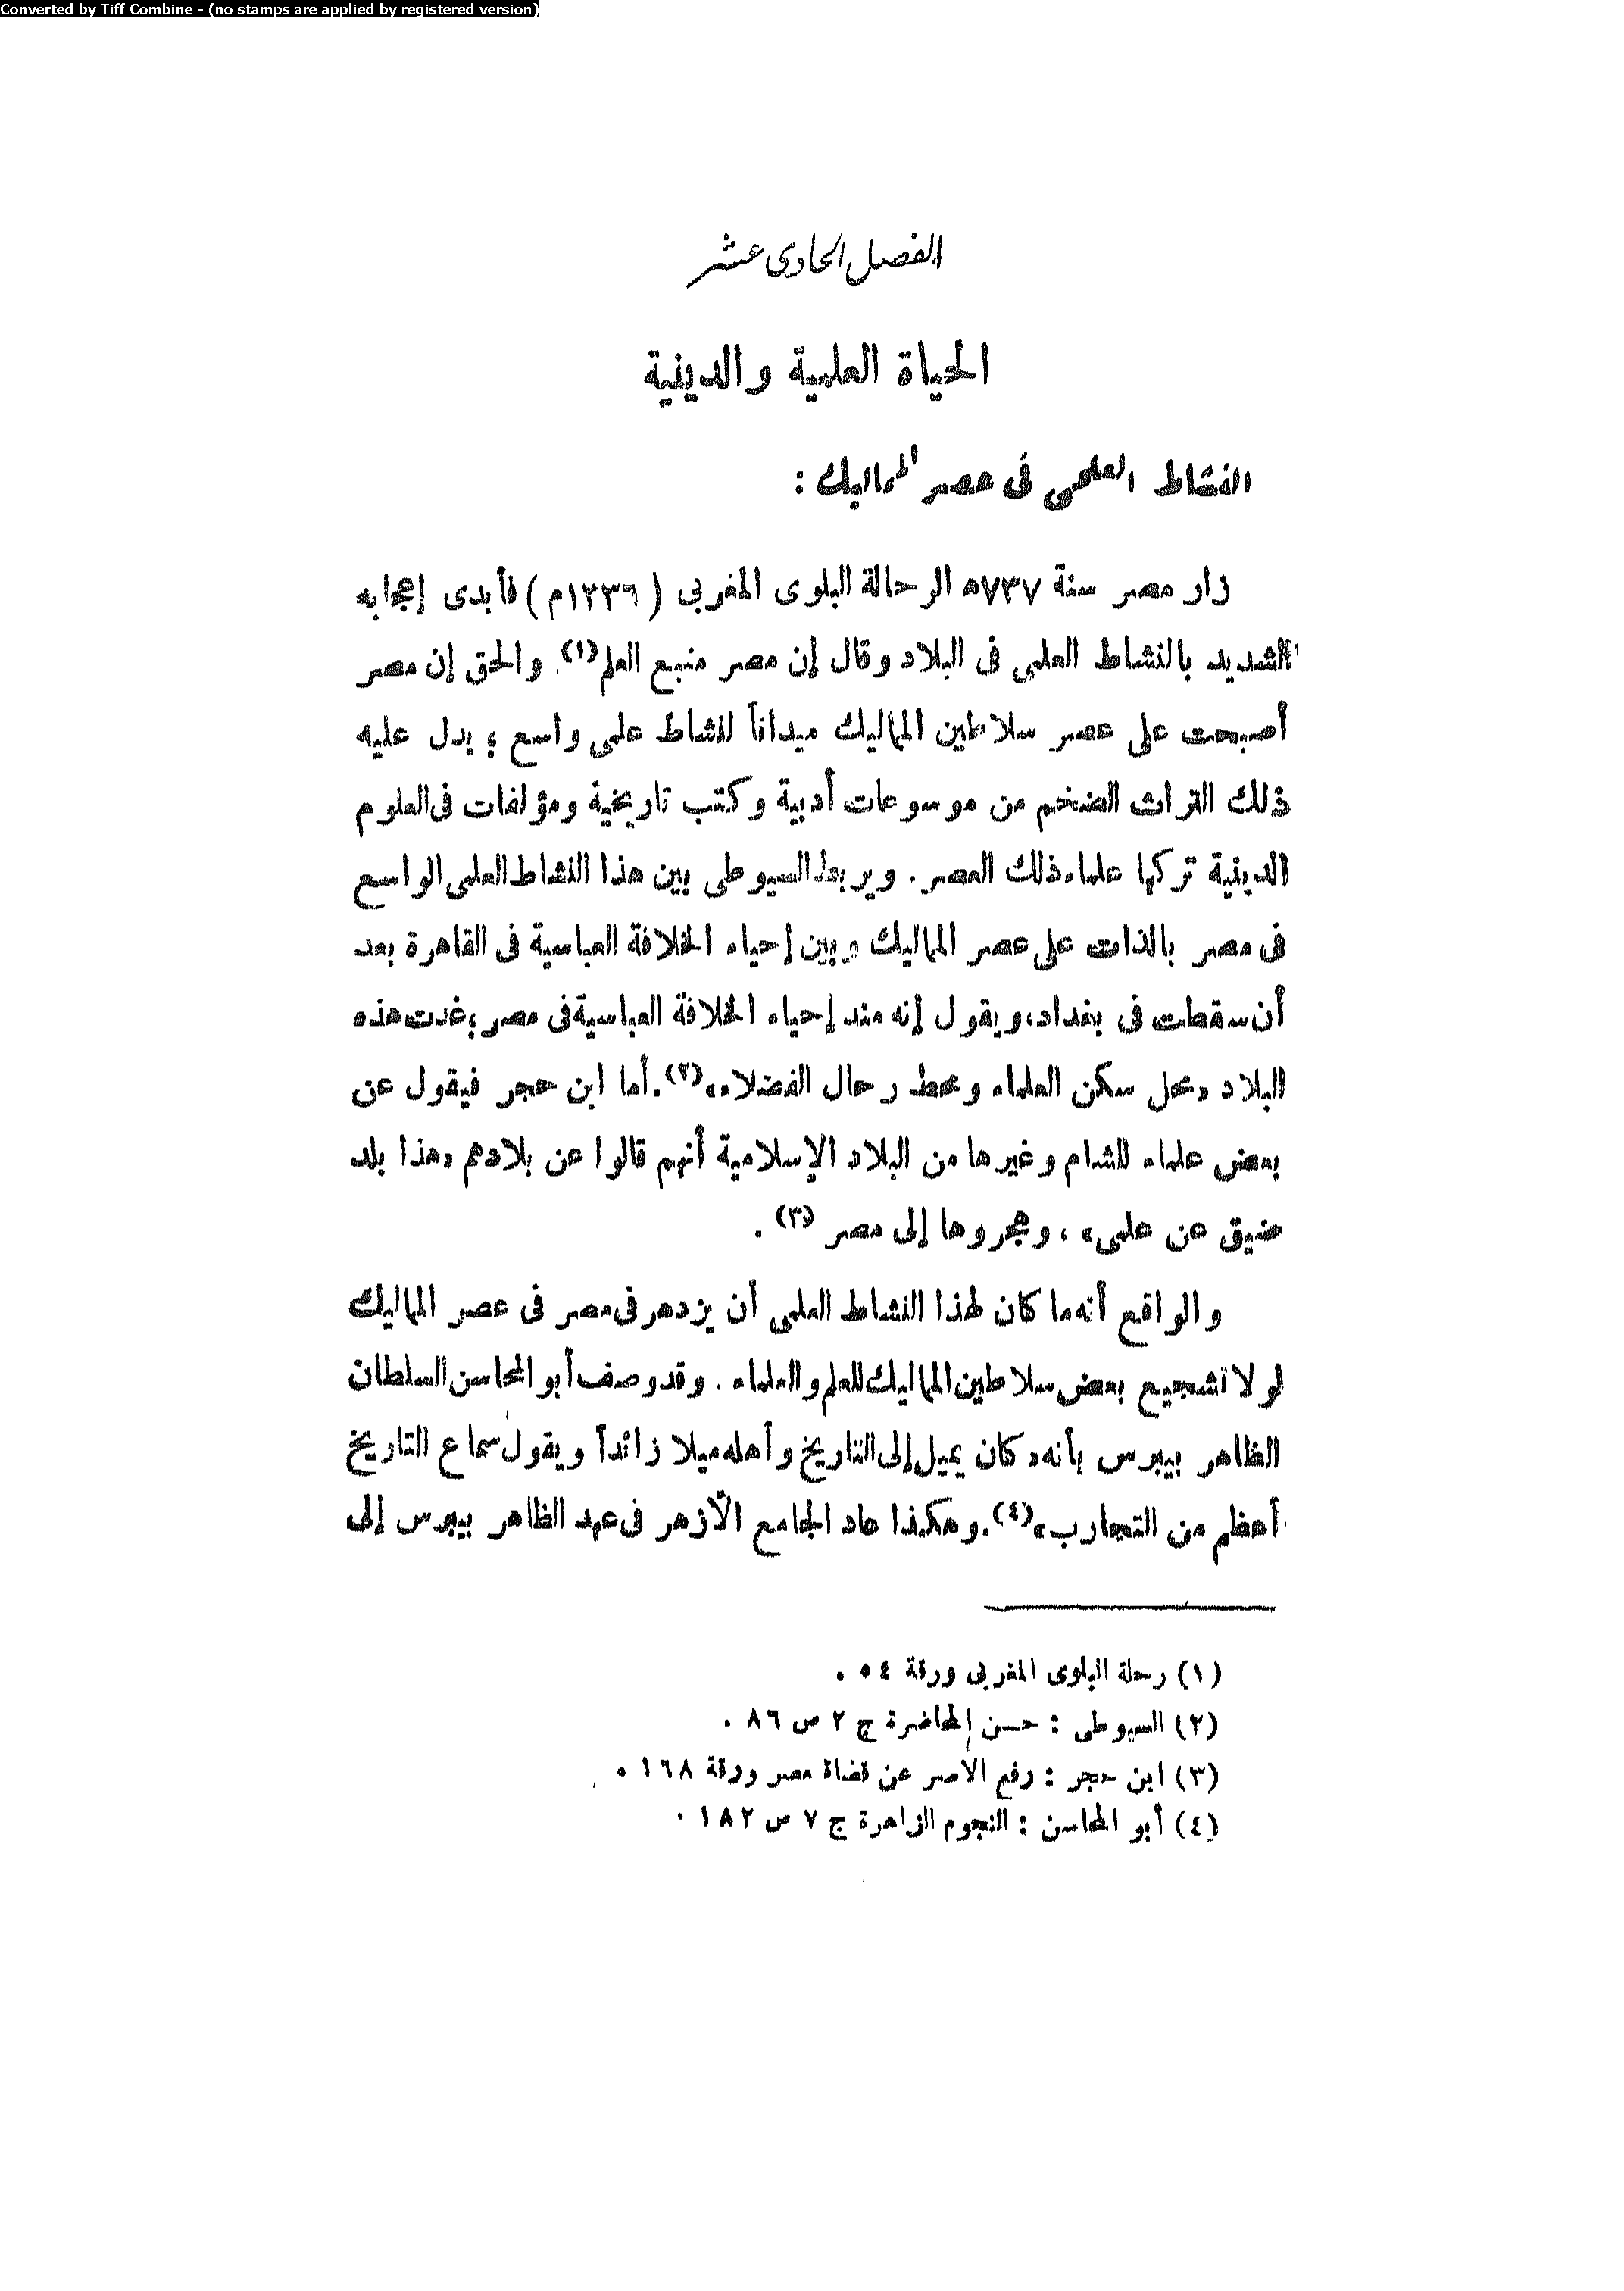 Converted by Tiff Combine - (no stamps are applied by registered version)
الفصل الحادى عشر
الحياة العلمية والدينية
النشاط العلمى فى عصر المماليك :
زار مصر سنة ٧٣٧ه الرحالة البلوى المغربى ( ١٣٣٦م ) فأبدى إعجابه
الشديد بالنشاط العلمى فى البلاد وقال إن مصر منبع العلم(١) . والحق إن مصر
أصبحت على عصر سلاطين المماليك ميداناً لنشاط علمى واسع ؛ يدل عليه
ذلك التراث الضخم من موسوعات أدبية وكتب تاريخية ومؤلفات فى العلوم
الدينية تركها علماء ذلك العصر . ويربط السيوطى بين هذا النشاط العلمى الواسع
فى مصر بالذات على عصر المماليك وبين إحياء الخلافة العباسية فى القاهرة بعد
أن سقطت فى بغداد، ويقول إنه منذ إحياء الخلافة العباسية فى مصر ؛ غدت هذه
البلاد «محل سكن العلماء ومحط رحال الفضلاء»(٢). أما ابن حجر فيقول عن
بعض علماء الشام وغيرها من البلاد الإسلامية أنهم قالوا عن بلادهم «هذا بلد
ضيق عن علمى» ، وهجروها إلى مصر (٣) .
والواقع أنه ما كان لهذا النشاط العلمى أن يزدهر فى مصر فى عصر المماليك
لولا تشجيع بعض سلاطين المماليك للعلم والعلماء . وقد وصف أبو المحاسن السلطان
الظاهر بيبرس بأنه «كان يميل إلى التاريخ وأهله ميلا زائداً ويقول سماع التاريخ
أعظم من التجارب»(٤). وهكذا عاد الجامع الأزهر فى عهد الظاهر بيبرس إلى
(١) رحلة البلوى المغربى ورقة ٥٤ .
(٢) السيوطى : حسن المحاضرة ج ٢ ص ٨٦ .
(٣) ابن حجر : رفع الاصر عن قضاة مصر ورقة ١٦٨ .
(٤) أبو المحاسن : النجوم الزاهرة ج ٧ ص ١٨٢ .